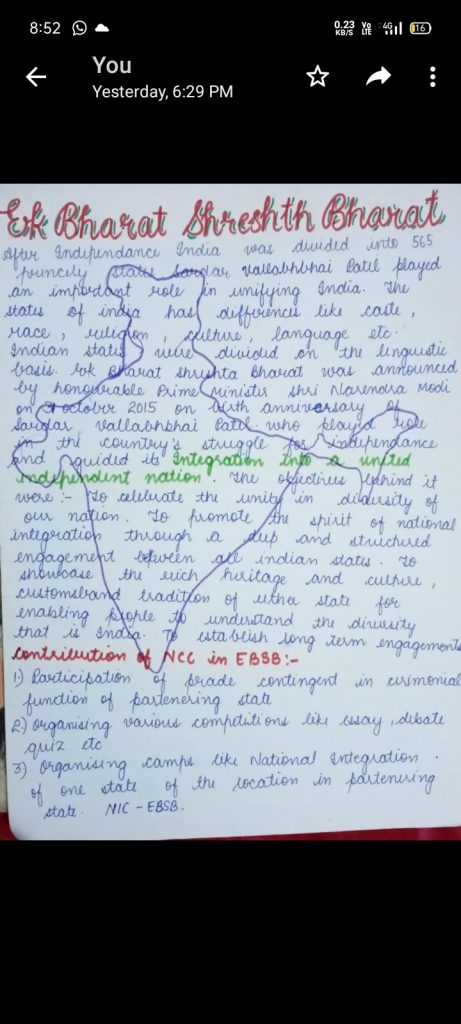 8:52
0.23 KB/S Vo LTE 4G 16
You
Yesterday, 6:29 PM
Ek Bharat Shreshth Bharat
After Independance India was divided into 565
princely states Sardar vallabhbhai Patel played
an important role in unifying India. The
states of india has differences like caste,
race, religion, culture, language etc.
Indian states were divided on the linguistic
basis. Ek Bharat shreshta Bharat was announced
by honourable Prime minister shri Narendra Modi
on october 2015 on birth anniversary of
Sardar vallabhbhai Patel who played role
in the country's struggle for independance
and guided its Integration into a united
independent nation. The objectives behind it
were :- To celebrate the unity in diversity of
our nation. To promote the spirit of national
integration through a deep and structured
engagement between all indian states. To
showcase the rich heritage and culture,
customsband tradition of other state for
enabling people to understand the diversity
that is India. To establish long term engagements
Contribution of NCC in EBSB:-
1) Participation of prade contingent in cerimonial
function of partenering state
2) organising various competitions like essay, debate
quiz etc
3) organising camps like National Integration.
of one state of the location in partenering
state. NIC - EBSB.